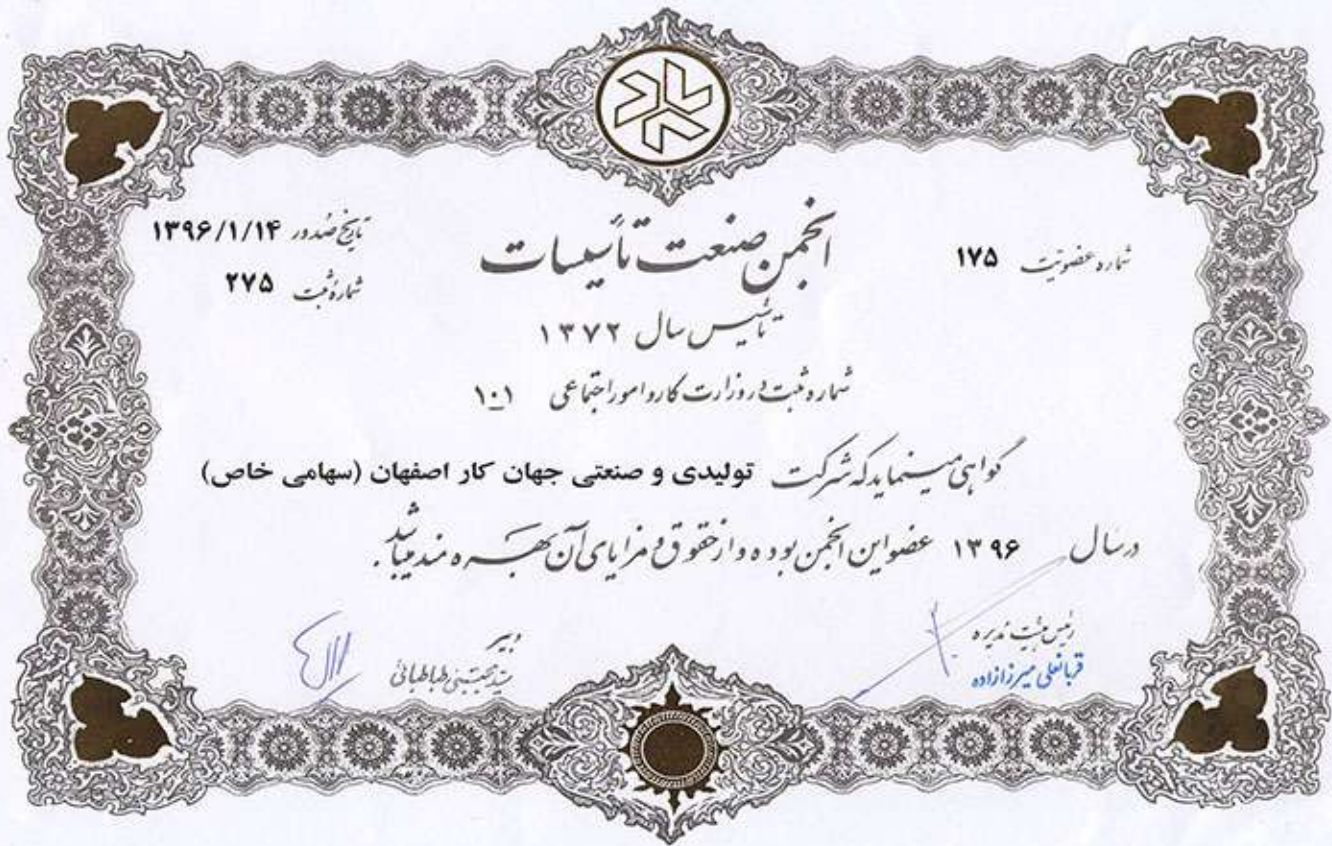 شماره عضویت ۱۷۵
انجمن صنعت تأسیسات
تاریخ صدور ۱۳۹۶/۱/۱۴
شماره ثبت ۲۷۵
تأسیس سال ۱۳۷۲
شماره ثبت در وزارت کار و امور اجتماعی ۱۰۱
گواهی مینماید که شرکت تولیدی و صنعتی جهان کار اصفهان (سهامی خاص)
در سال ۱۳۹۶ عضو این انجمن بوده و از حقوق و مزایای آن بهره مند میباشد.
رئیس هیئت مدیره
قربانعلی میرزازاده
دبیر
سید مجتبی طباطبائی